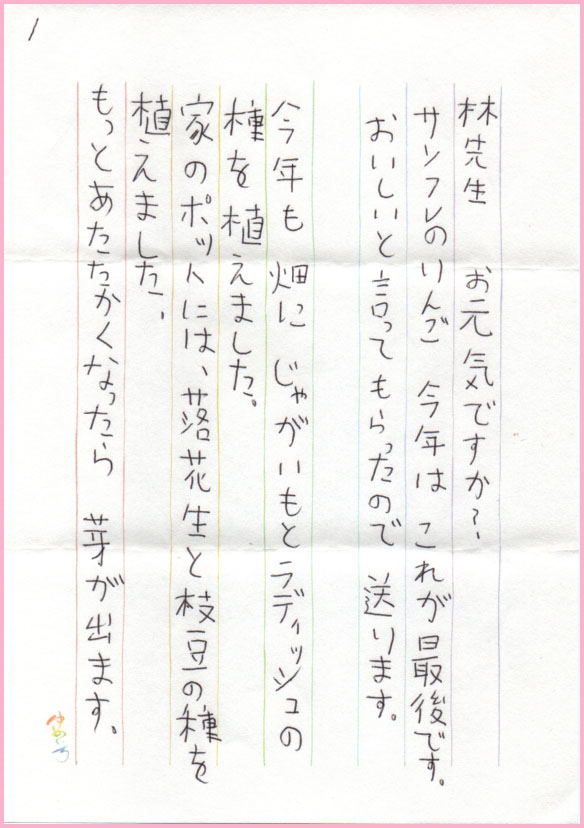 1
林先生 お元気ですか?
サンフレのりんご 今年は これが最後です。
おいしいと言ってもらったので 送ります。
今年も 畑に じゃがいもとラディッシュの
種を植えました。
家のポットには、落花生と枝豆の種を
植えました。
もっとあたたかくなったら 芽が出ます。
ゆめいろ